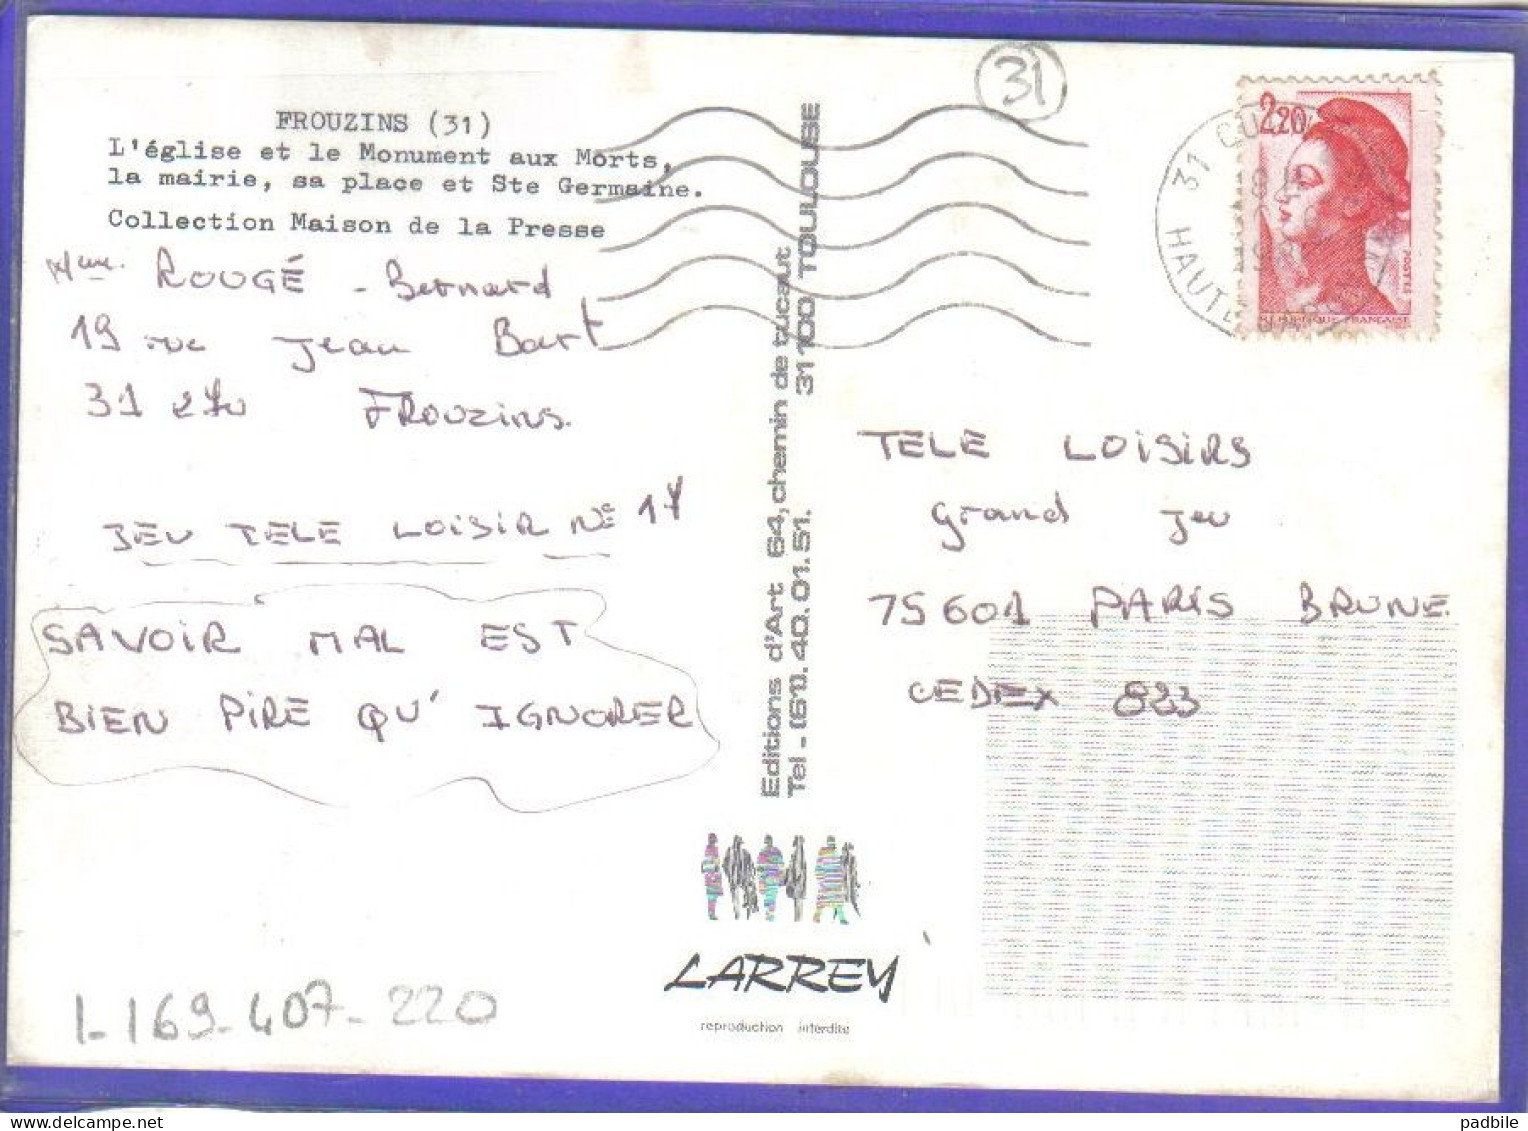 FROUZINS (31)
L'église et le Monument aux Morts,
la mairie, sa place et Ste Germaine.
Collection Maison de la Presse
ROUGÉ - Bernard
19 rue Jean Bart
31 270 FROUZINS.
JEU TELE LOISIR N° 17
SAVOIR MAL EST
BIEN PIRE QU' IGNORER
1-169-407-220
Editions d'Art 64, chemin de tucaut
Tel - (61). 40. 01. 51. 31100 TOULOUSE
LARREY
reproduction interdite
31
2,20
POSTES
REPUBLIQUE FRANÇAISE
31
HAUTE
TELE LOISIRS
grand jeu
75601 PARIS BRUNE
CEDEX 833
padbile